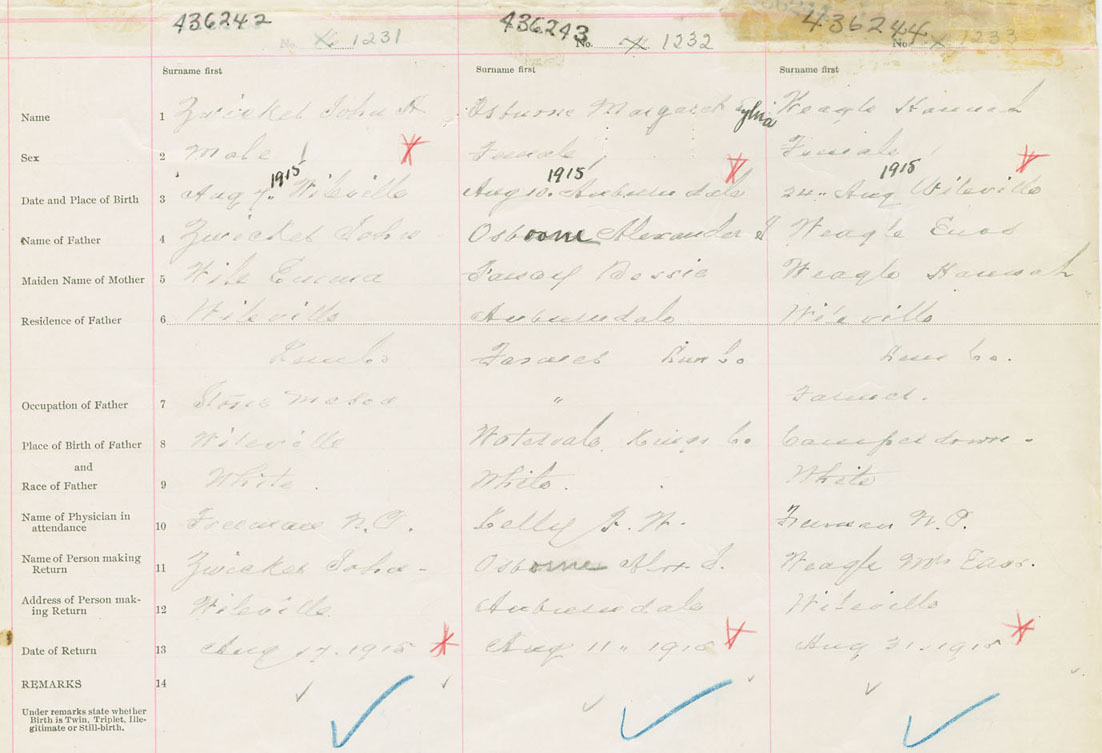 436242 436243 436244
No. X 1231 No. X 1232 No. X 1233
Surname first Surname first Surname first
Name 1 Zwicker John A Osburne Margaret Sylvia Weagle Hannah
Sex 2 Male Female Female
1915 1915 1915
Date and Place of Birth 3 Aug 4. Wileville Aug 10. Auburndale 24. Aug Wileville
Name of Father 4 Zwicker John Osborne Alexander Weagle Enos
Maiden Name of Mother 5 Wile Emma Bessie Weagle Hannah
Residence of Father 6 Wileville Auburndale Wileville
Lun Co Farmer Lun Co Lun Co.
Occupation of Father 7 Stone Mason " Farmer.
Place of Birth of Father 8 Wileville Watervale Kings Co Camperdown
and
Race of Father 9 White. White. White
Name of Physician in
attendance 10 Freeman N.P. Kelly F. W. Freeman N.P.
Name of Person making
Return 11 Zwicker John Osborne Alex. Weagle Mrs Enos.
Address of Person mak-
ing Return 12 Wileville Auburndale Wileville
Date of Return 13 Aug 17. 1915 Aug 11" 1915 Aug 31. 1915
REMARKS 14
Under remarks state whether
Birth is Twin, Triplet, Ille-
gitimate or Still-birth.